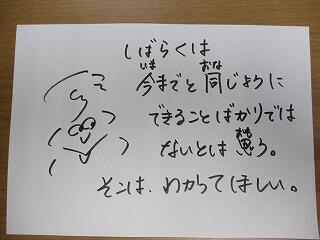 しばらくは
いま おな
今までと同じように
できることばかりでは
おも
ないとは思う。
そこは、わかってほしい。